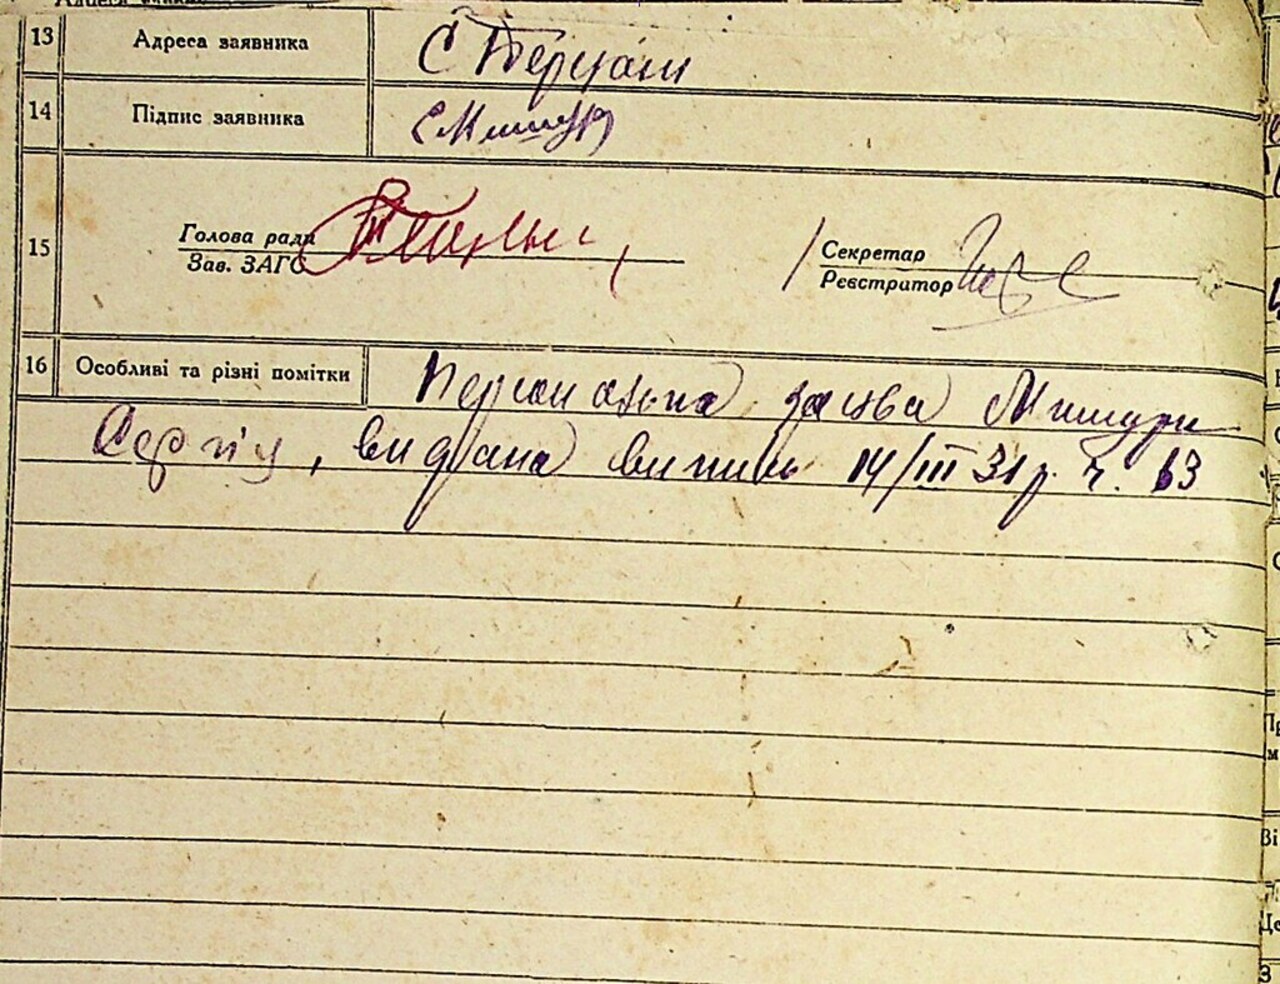 13 Адреса заявника С Терцани
14 Підпис заявника С Мишур
15 Голова ради
Зав. ЗАГС
Секретар
Реєстратор
16 Особливі та різні помітки Персональна заява Мишури
Сергія, видана випись 14/III 31 р. ч. 63